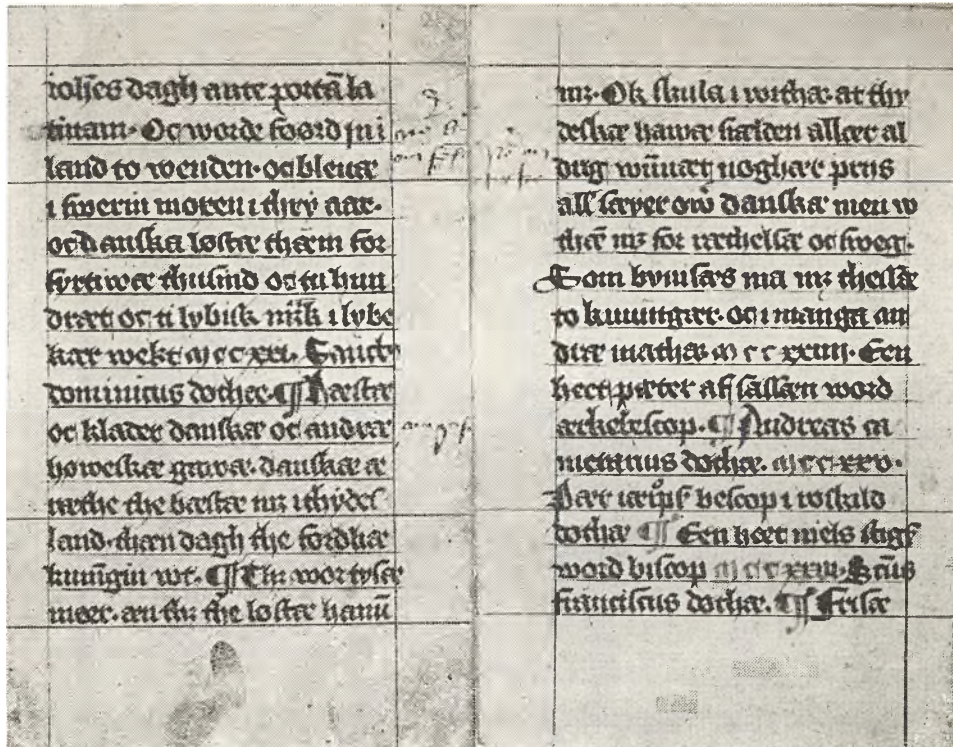 iohēs dagh ante portā la
tinam. Oc worde foord in i
land to wenden. oc bleuæ
i swerin moren i thry aar.
oc danska løstæ thæm for
fyrtiwæ thusind oc tu hun
dræt oc ti lybisk mrk i lybe
kær wekt mccxxi. Sancts
dominicus dothæ. ¶ Hæstæ
oc klæder danskæ oc andræ
howeskæ gawæ. danskæ æ
the bæstæ nz i thydes
land. thæn dagh the fordhæ
kunīgin wt. ¶ Thz wor tysæ
meer. æn thz the løstæ hanū
nz. Ok skula i withæ at thy
deskæ hawæ sælden allær al
drig wūnæt noghær priis
all sæyer ow danskæ men w
thē mz for rædhelsæ oc sweg.
Som byuisæs ma mz thessæ
to kunungær. oc i manga an
dræ mathæ mccxxiiii. Een
heet pæter af salläen word
ærkebiscop. ¶ Andreas
dothæ. mccxxv.
Pær bescop i roskild
dothæ ¶ Een heet niels stigs
word biscop mccxxvi. Scūs
franciscus dothæ. ¶ Frisæ